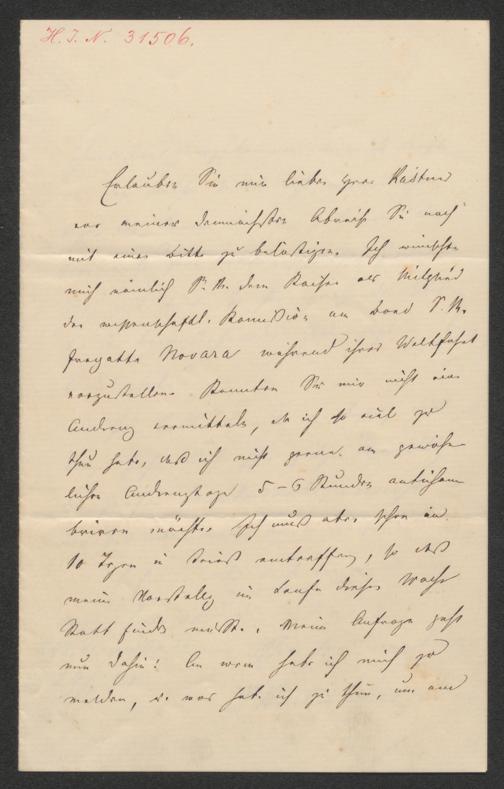 H. I. N. 31506.
Erlauben Sie mir lieber Herr Kästner
vor meiner demnächstigen Abreise Sie noch
mit einer Bitte zu belästigen. Ich wünschte
mich nämlich Sr. M. dem Kaiser als Mitglied
der wissenschaftl. Kommission an Bord S. M.
Fregatte Novara während ihrer Weltfahrt
vorzustellen. Könnten Sie mir nicht eine
Audienz vermitteln, da ich so viel zu
thun habe, daß ich nicht gerne am gewöhn-
lichen Audienztage 5-6 Stunden anticham-
briren möchte. Ich muß aber schon in
10 Tagen in Triest eintreffen, so daß
meine Vorstellg im Laufe dieser Woche
Statt finden müßte. Meine Anfrage geht
nun dahin: An wem habe ich mich zu
melden, u. was habe ich zu thun, um